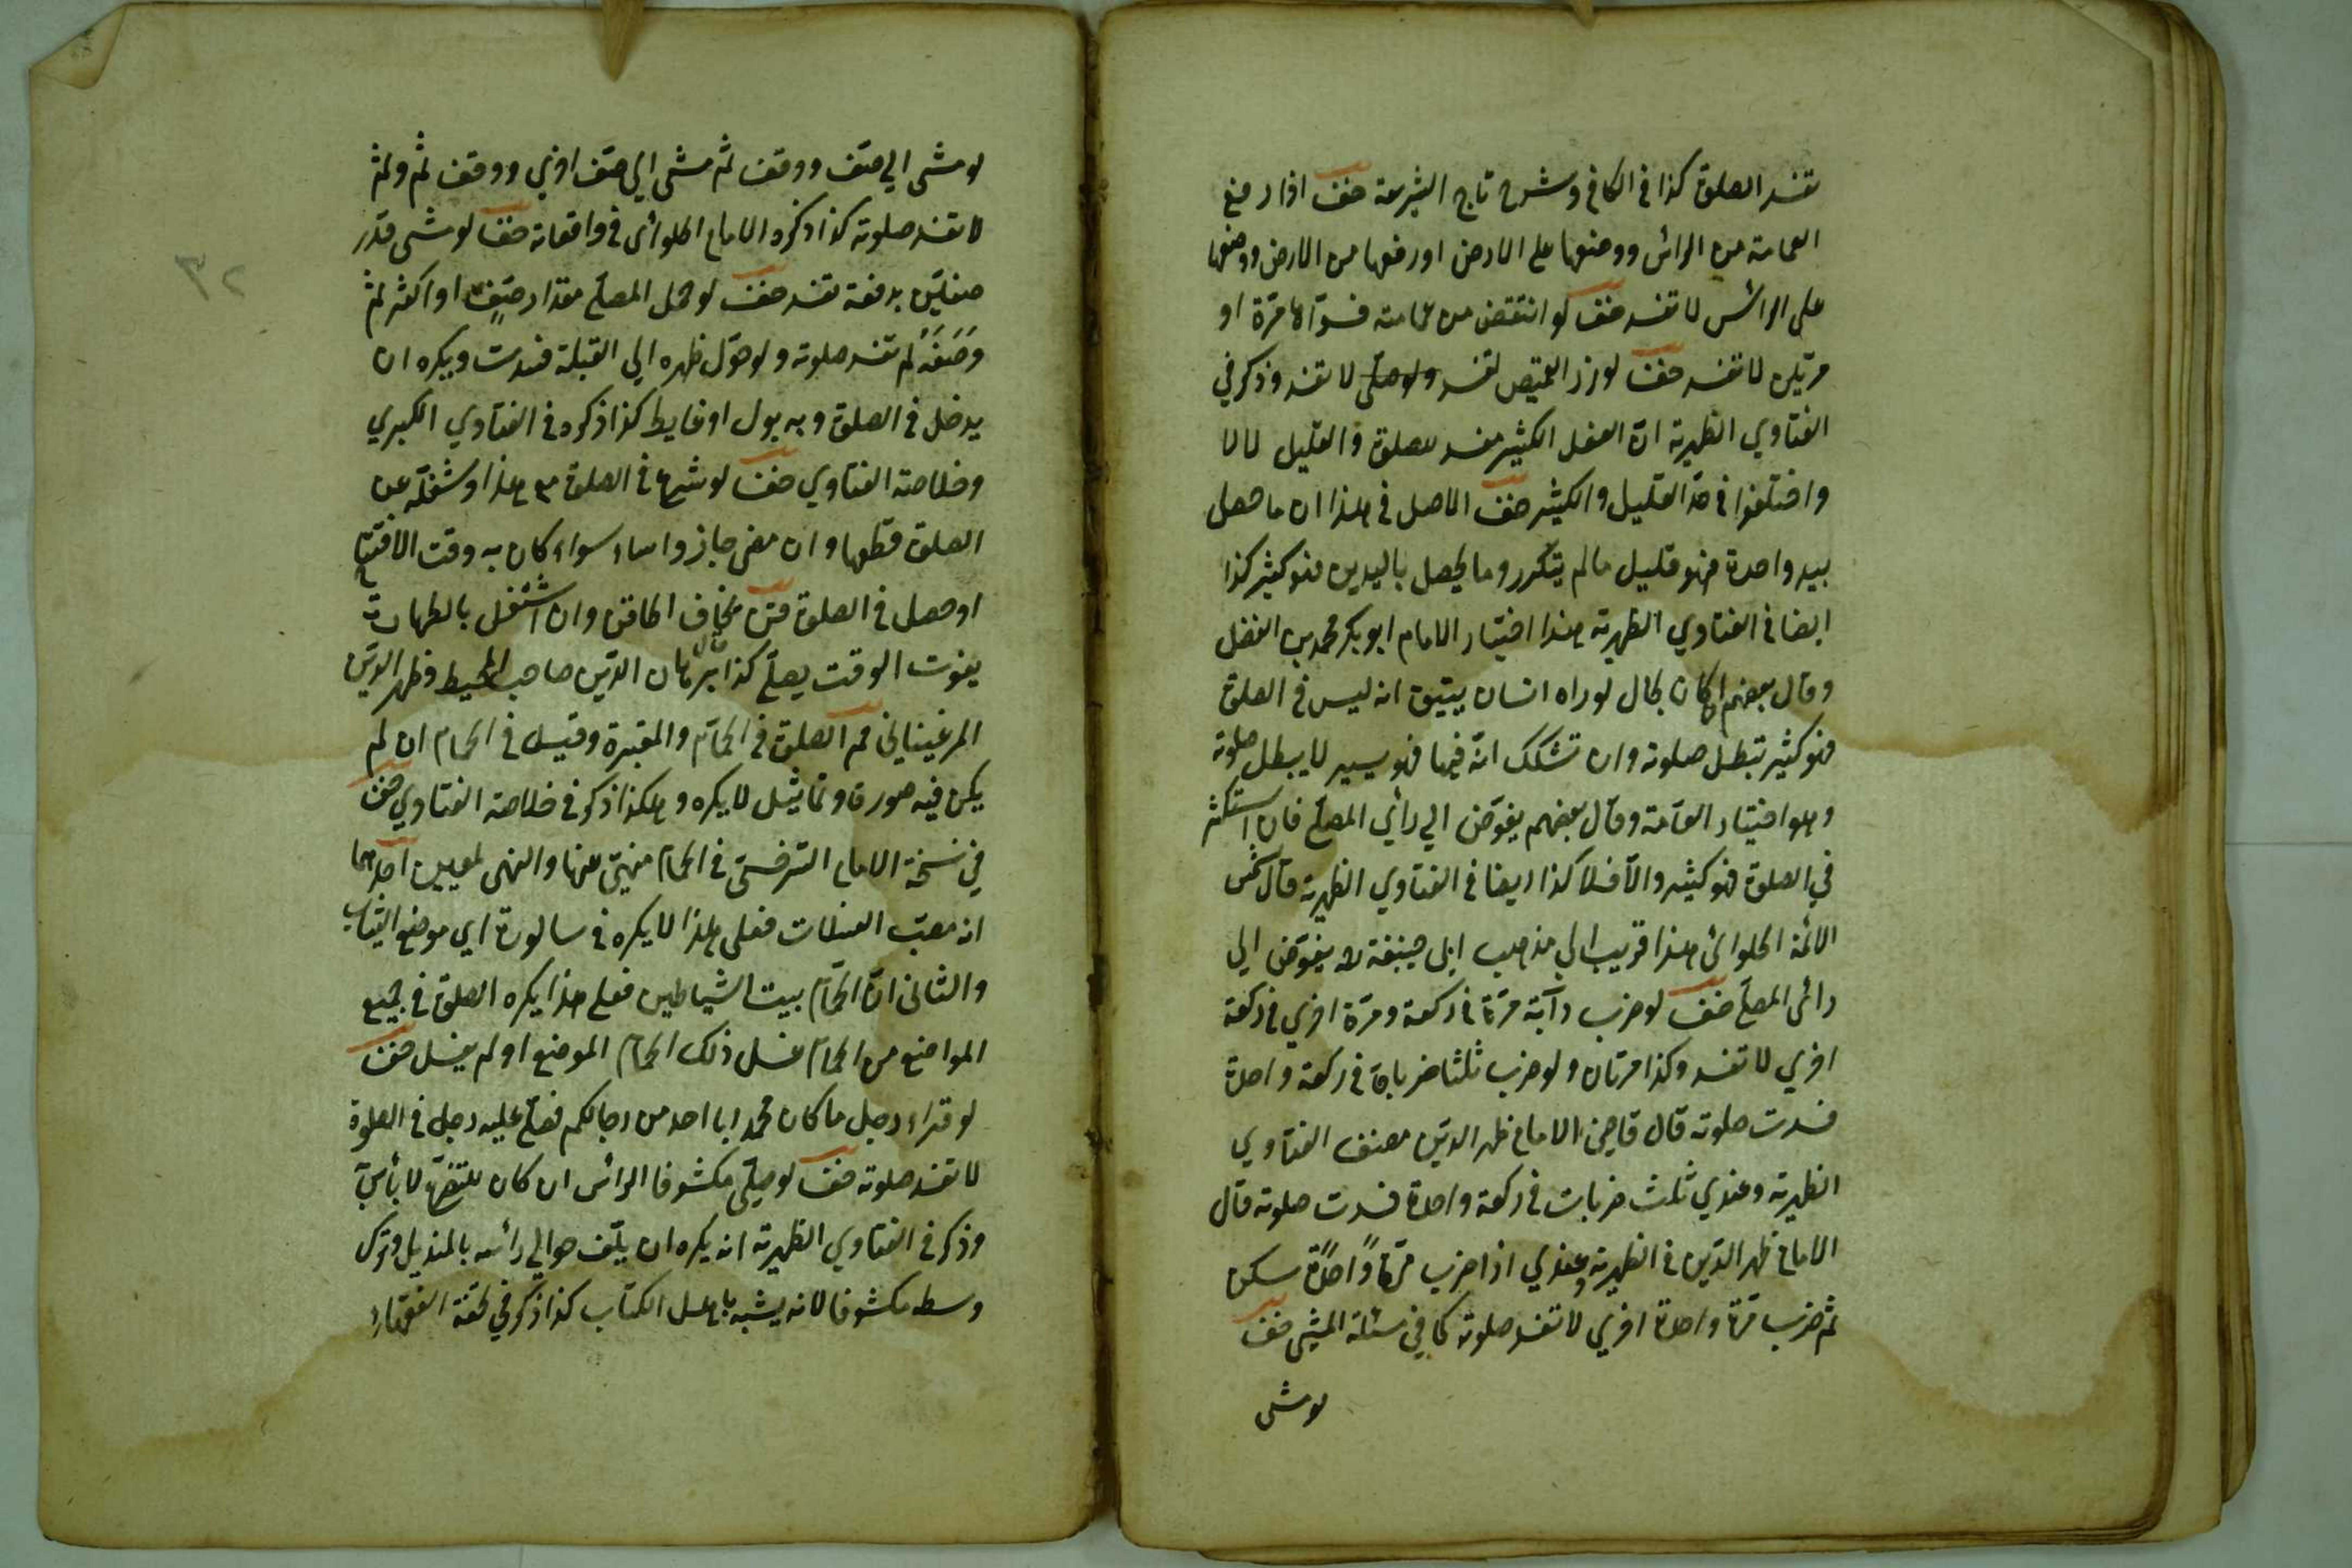 تفسد الصلوة كذا في الكافي وشرح تاج الشريعة حنف اذا رفع
العمامة من الرأس ووضعها على الارض او رفعها من الارض ووضعها
على الرأس لا تفسد حنف لو انتقض من عمامته فسواها مرّة او
مرتين لا تفسد حنف لو زر القميص تفسد ولو حل لا تفسد وذكر في
الفتاوي الظهيرية ان الفعل الكثير مفسد للصلوة والقليل لا
واختلفوا في حد القليل والكثير حنف الاصل في هذا ان ما حصل
بيد واحدة فهو قليل ما لم يتكرر وما يحصل باليدين فهو كثير كذا
ايضا في الفتاوي الظهيرية هذا اختيار الامام ابو بكر محمد بن الفضل
وقال بعضهم ان كان بحال لو راه انسان يتيقن انه ليس في الصلوة
فهو كثير تبطل صلوته وان تشكك انّه فيها فهو يسير لا يبطل صلوته
وهو اختيار العامّة وقال بعضهم يفوّض الى رأي المصلّي فان استكثر
في الصلوة فهو كثير والّا فلا كذا ايضا في الفتاوي الظهيرية قال شمس
الائمة الحلوائى هذا قريب الى مذهب ابى حنيفة لانه يفوّض الى
رائى المصلّي حنف لو ضرب دآبّة مرّة في ركعة ومرّة اخري في ركعة
اخري لا تفسد وكذا مرتان ولو ضرب ثلثا ضربات في ركعة واحدة
فسدت صلوته قال قاضي الامام ظهر الدين مصنف الفتاوي
الظهيرية وعندي ثلث ضربات في ركعة واحدة فسدت صلوته قال
الامام ظهر الدّين في الظهيرية وعندي اذا ضرب مرّةً واحدةً سكن
ثم ضرب مرّة واحدة اخري لا تفسد صلوته كما في مسئلة المشى حنف
لو مشى
لو مشى الي صف ووقف ثم مشى الي صف اخري ووقف ثم وثم
لا تفسد صلوته كذا ذكره الامام الحلوائى في واقعاته حنف لو مشى قدر
صفين بدفعة تفسد حنف لو حمل المصلّي مقدار صفّ او اكثر ثم
وَضَعَهُ لم تفسد صلوته ولو حوّل ظهره الي القبلة فسدت ويكره ان
يدخل في الصلوة وبه بول او غايط كذا ذكره في الفتاوي الكبري
وخلاصة الفتاوي حنف لو شرع في الصلوة مع هذا وشغله عن
الصلوة قطعها وان مضى جاز واساء سواء كان به وقت الافتتاح
او حصل في الصلوة وان اشتغل بالطهارة
يفوت الوقت يصلّي كذا قال برهان الدّين صاحب المحيط وظهر الدّين
المرغينانى الصلوة في الحمّام والمقبرة وقيل في الحمام ان لم
يكن فيه صورة وتماثيل لا يكره وهكذا ذكر في خلاصة الفتاوي حنف
في نسخة الامام السّرخسى في الحمّام منهىّ عنها والنهى لمعنيين احدهما
انه مصبّ الغسالات فعلى هذا لا يكره في سالورة اي موضع الثياب
والثانى انّ الحمّام بيت الشياطين فعلى هذا يكره الصلوة في جميع
المواضع من الحمّام غسل ذلك الحمام الموضع او لم يغسل حنف
لو قراء رجل ما كان محمد ابا احد من رجالكم فصلّى عليه رجل في الصلوة
لا تفسد صلوته حنف لو صلّى مكشوف الرأس ان كان للتضرّع لا بأس به
وذكر في الفتاوي الظهيرية انه يكره ان يلّف حوالي رأسه بالمنديل وترك
وسطه مكشوفا لانه يشبه باهل الكتاب كذا ذكر في تحفة الفقهاء
٣٢